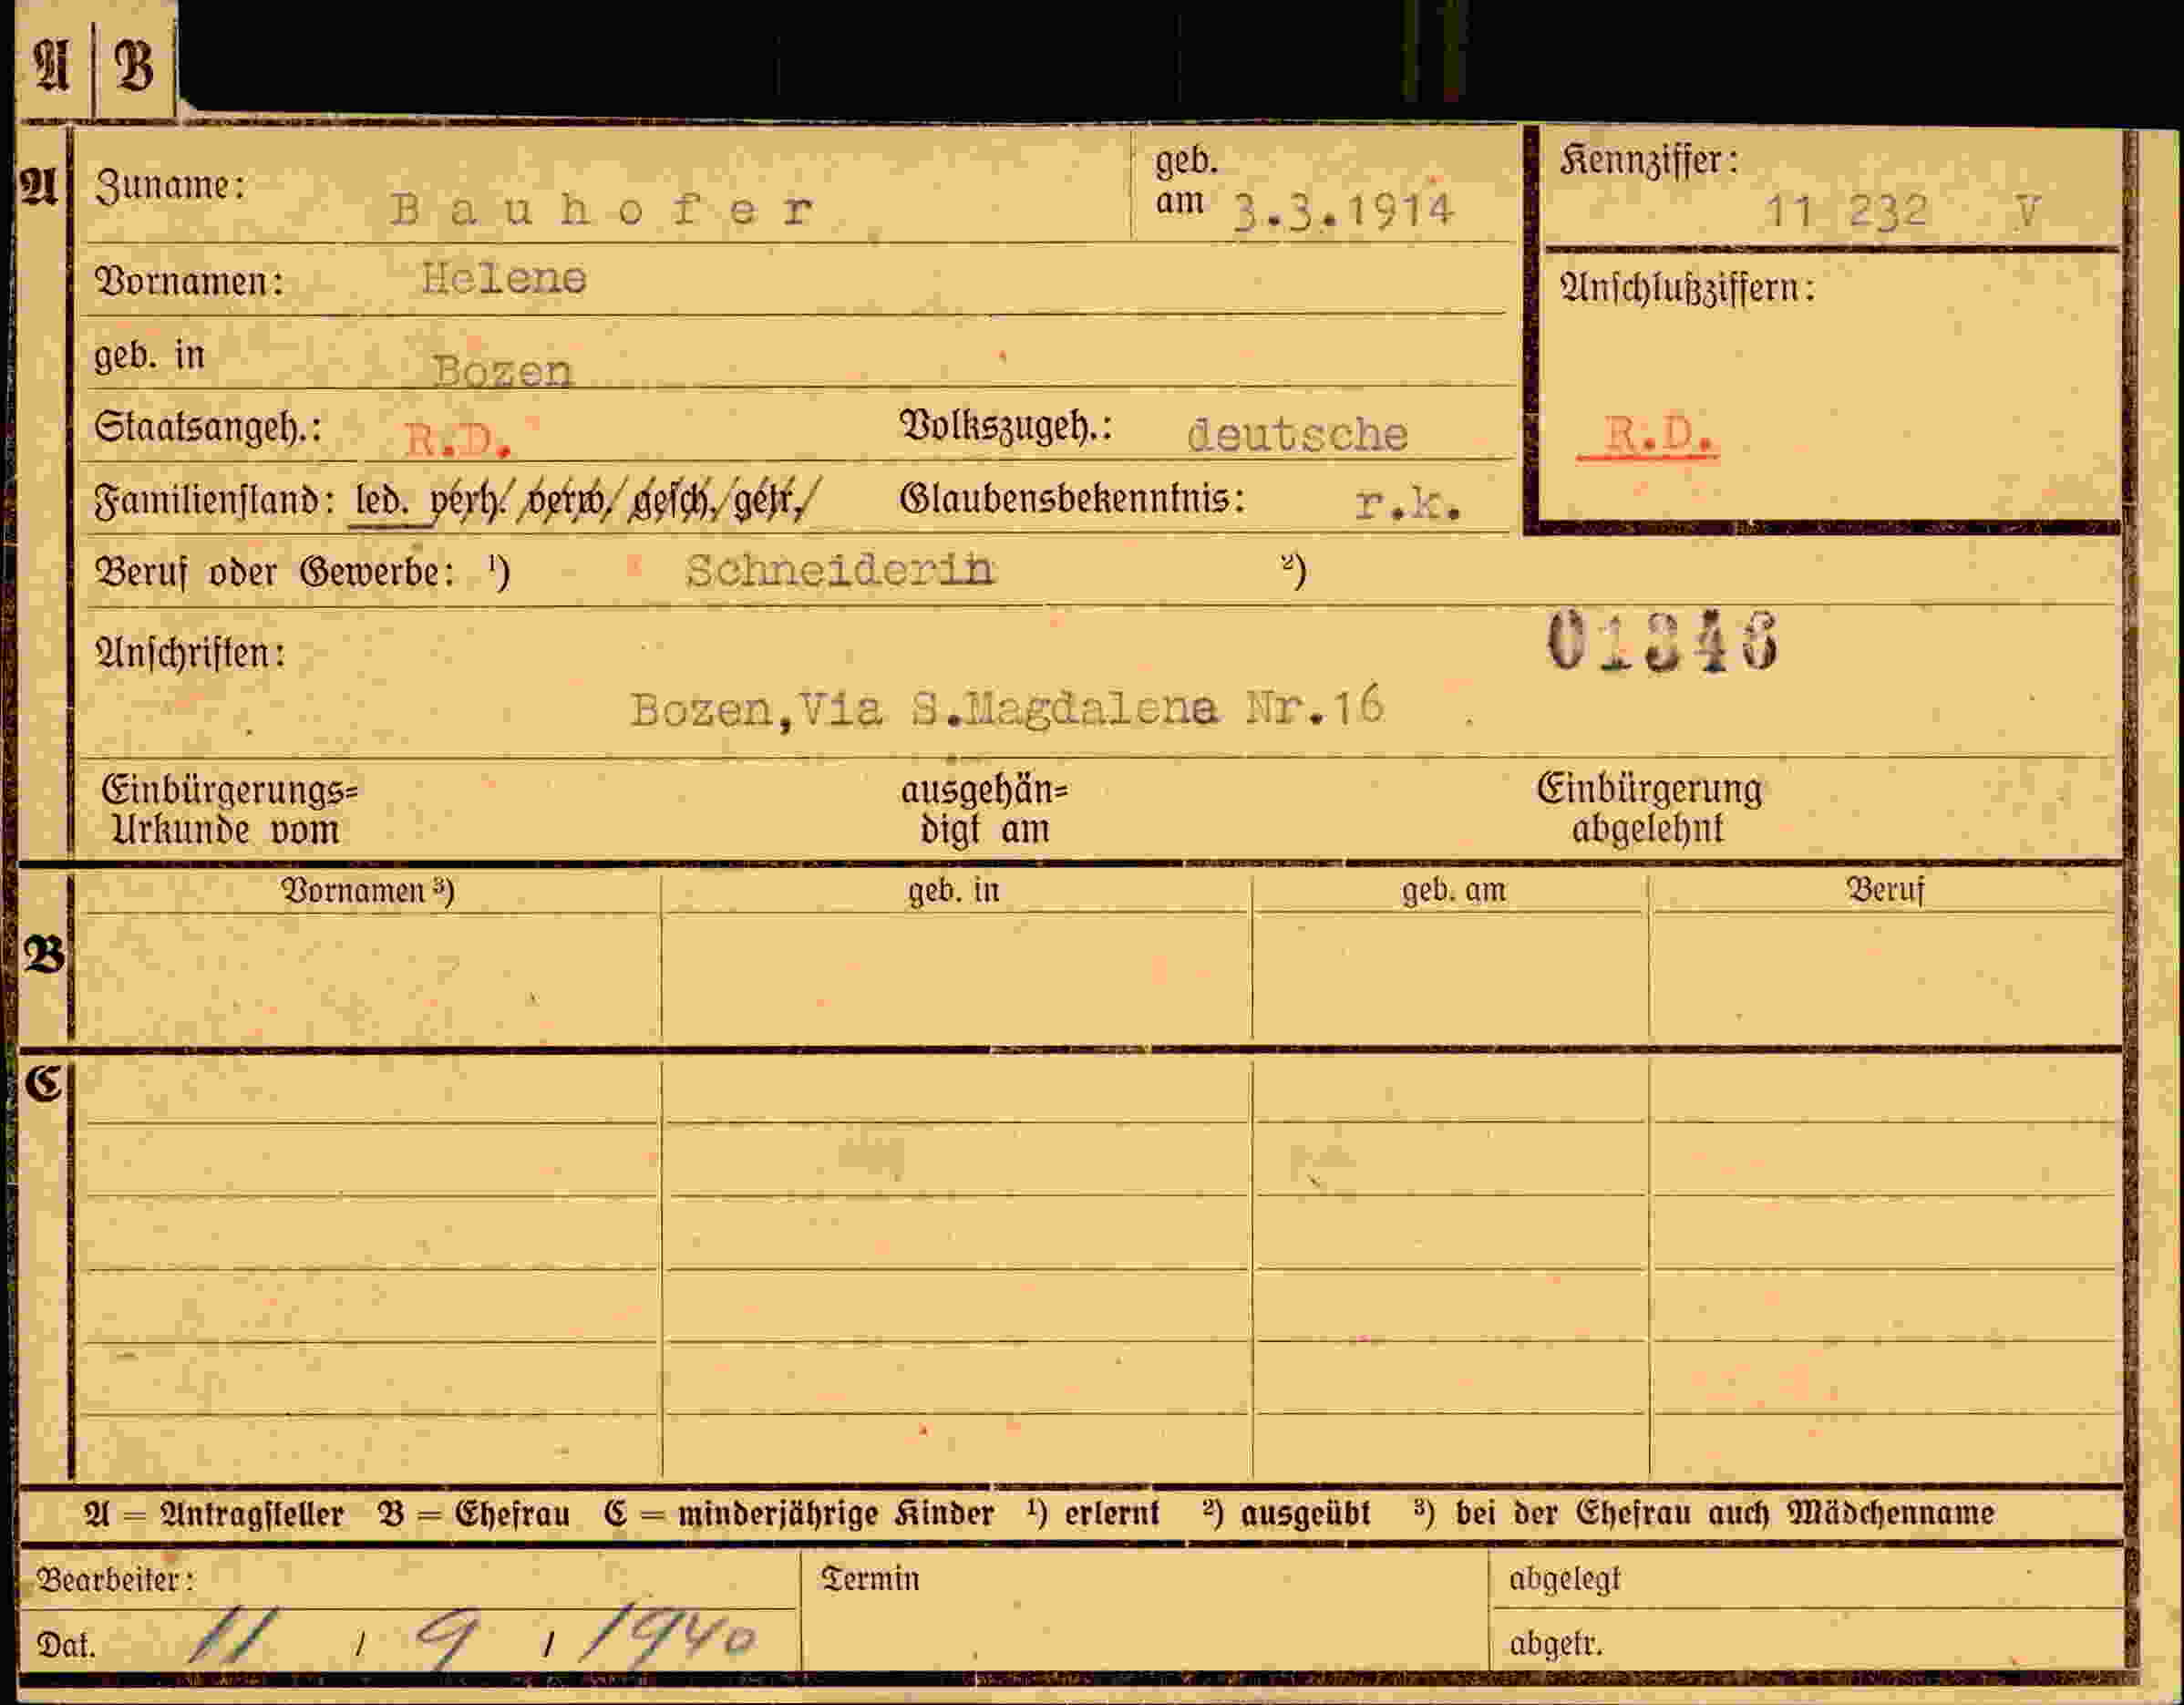 A | B
A Zuname: Bauhofer geb. am 3.3.1914 Kennziffer: 11 232 V
Vornamen: Helene Anschlußziffern:
geb. in Bozen
Staatsangeh.: R.D. Volkszugeh.: deutsche R.D.
Familienstand: led. verh. verw. gesch. getr. Glaubensbekenntnis: r.k.
Beruf oder Gewerbe: ¹) Schneiderin ²)
Anschriften: 01346
Bozen,Via S.Magdalena Nr.16
Einbürgerungs= ausgehän= Einbürgerung
Urkunde vom digt am abgelehnt
Vornamen ³) geb. in geb. am Beruf
B
C
A = Antragsteller B = Ehefrau C = minderjährige Kinder ¹) erlernt ²) ausgeübt ³) bei der Ehefrau auch Mädchenname
Bearbeiter: Termin abgelegt
Dat. 11 / 9 / 1940 abgetr.